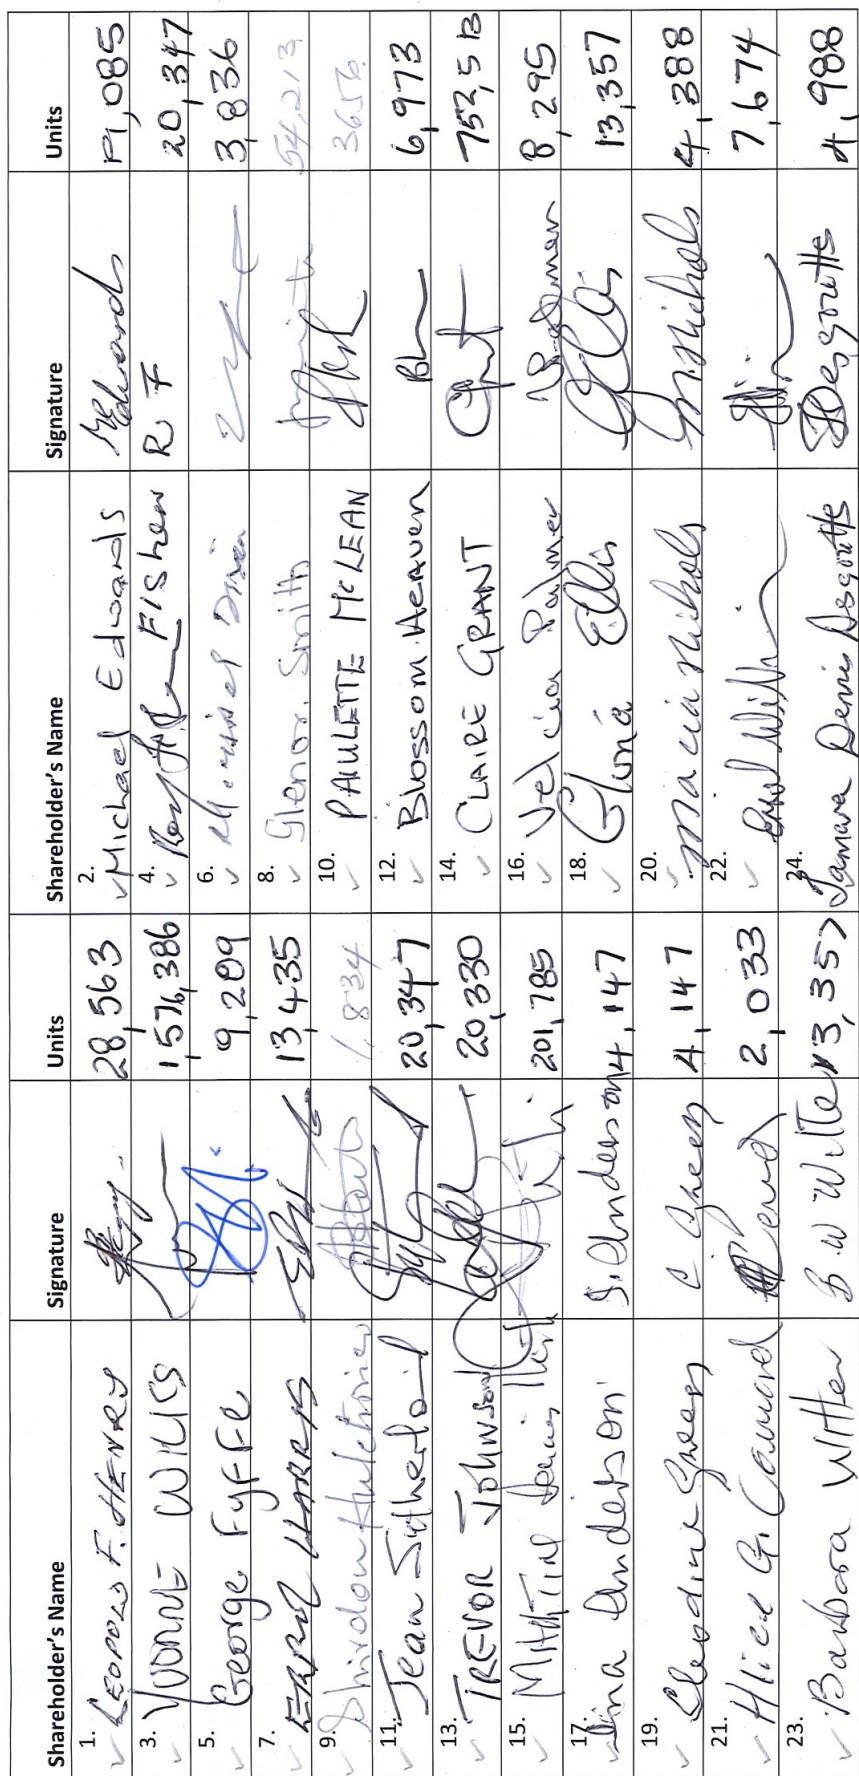 Shareholder's Name Signature Units Shareholder's Name Signature Units
1. LEOPOLD F. HENRY 28,563 2. Michael Edwards MEdwards 19,085
3. YVONNE WILLIS 1,576,386 4. Roy Fisher FISHER R F 20,347
5. George Fyffe 9,209 6. 3,836
7. ERROL HARRIS 13,435 8. Glenor Smith 54,213
9. Shirdon Hutchinson 1,834 10. PAULETTE McLEAN 3656
11. Jean Sutherland 20,347 12. Blossom Heaven BH 6,973
13. TREVOR Johnson 20,330 14. CLAIRE GRANT 752,513
15. 201,785 16. Velcia Palmer 8,295
17. Ina Anderson I. Anderson 4,147 18. Gloria Ellis GEllis 13,357
19. Claudine Green C. Green 4,147 20. Marcia Nichols M. Nichols 4,388
21. Alice G. 2,033 22. 7,674
23. Barbara Witter B. W Witter 13,357 24. Tamara Dennis Desgoutte Desgoutte 4,988